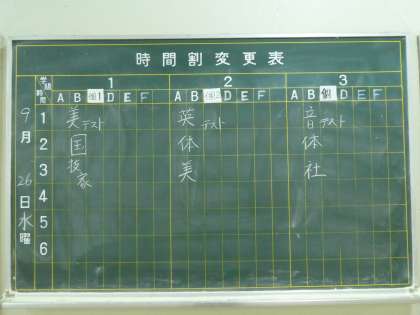 時間割変更表
学級 1 2 3
時間 A B 個1 D E F A B 個2 D E F A B 個 D E F
9月26日水曜
1 美テスト 英テスト 音テスト
2 国 体 体
3 技家 美 社
4
5
6